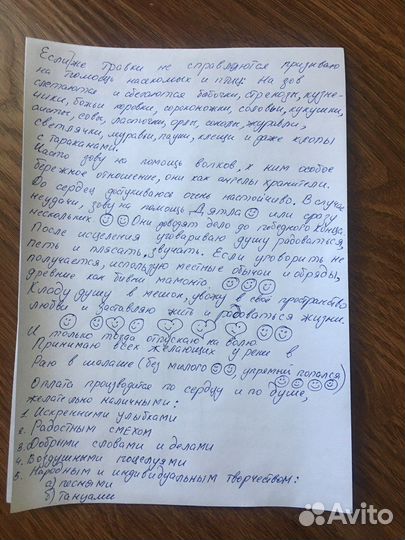 Если же травки не справляются призываю
на помощь насекомых и птиц. На зов
слетаются и сбегаются бабочки, стрекозы, кузне-
чики, божьи коровки, сороконожки, соловьи, кукушки,
аисты, совы, ласточки, орлы, соколы, журавли,
светлячки, муравьи, пауки, клещи и даже клопы
с тараканами.
Часто зову на помощь волков, к ним особое
бережное отношение, они как ангелы хранители.
До сердец достукиваюсь очень настойчиво. В случае
неудачи, зову на помощь Дятла или сразу
нескольких Они доводят дело до победного конца.
После исцеления уговариваю душу радоваться,
петь и плясать, звучать. Если уговорить не
получается, использую местные обычаи и обряды,
древние как бивни мамонта
Кладу душу в мешок, увожу в своё пространство
любви и заставляю жить и радоваться жизни.
И только тогда отпускаю на волю
Принимаю всех желающих у реки в
Раю в шалаше (без милого, упрямый попался)
Оплата производится по сердцу и по душе,
желательно наличными:
1. Искренними улыбками
2. Радостным смехом
3. Добрыми словами и делами
4. Воздушными поцелуями
5. Народным и индивидуальным творчеством:
а) песнями
б) танцами
Avito